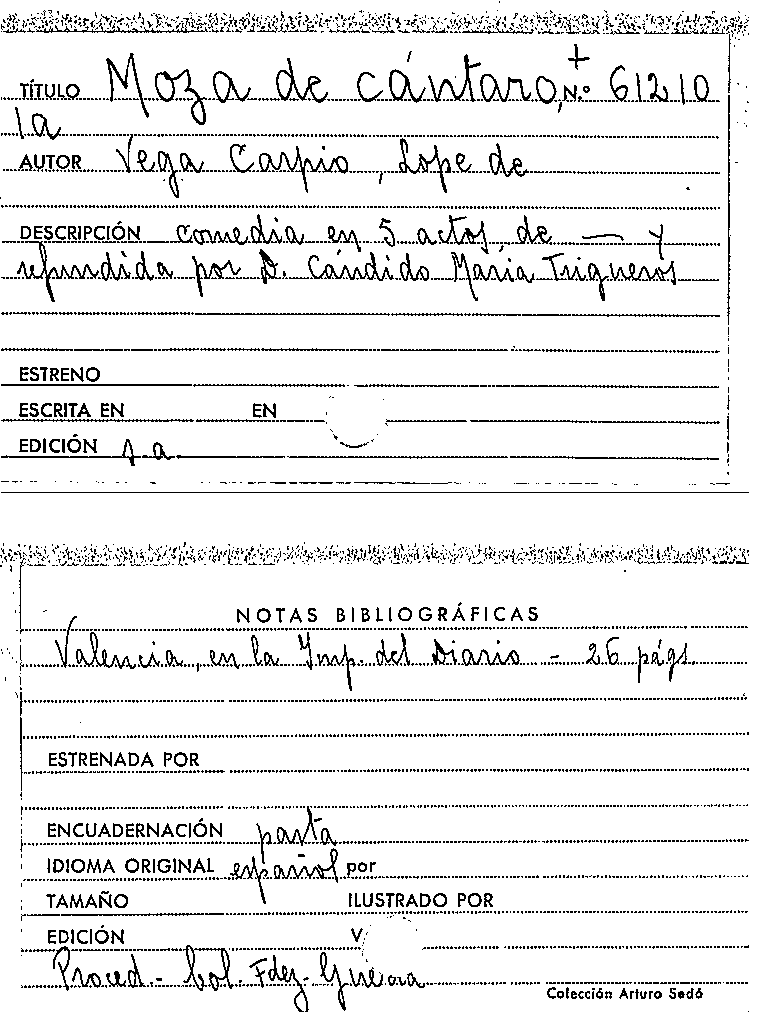 TÍTULO Moza de cántaro, N.º 61210
la
AUTOR Vega Carpio, Lope de
DESCRIPCIÓN comedia en 5 actos, de — y
refundida por D. Cándido María Trigueros
ESTRENO
ESCRITA EN EN
EDICIÓN s.a.
NOTAS BIBLIOGRÁFICAS
Valencia, en la Imp. del Diario - 26 págs.
ESTRENADA POR
ENCUADERNACIÓN pasta
IDIOMA ORIGINAL español por
TAMAÑO ILUSTRADO POR
EDICIÓN V
Proced.- Col. Fdez-Guerra
Colección Arturo Sedó